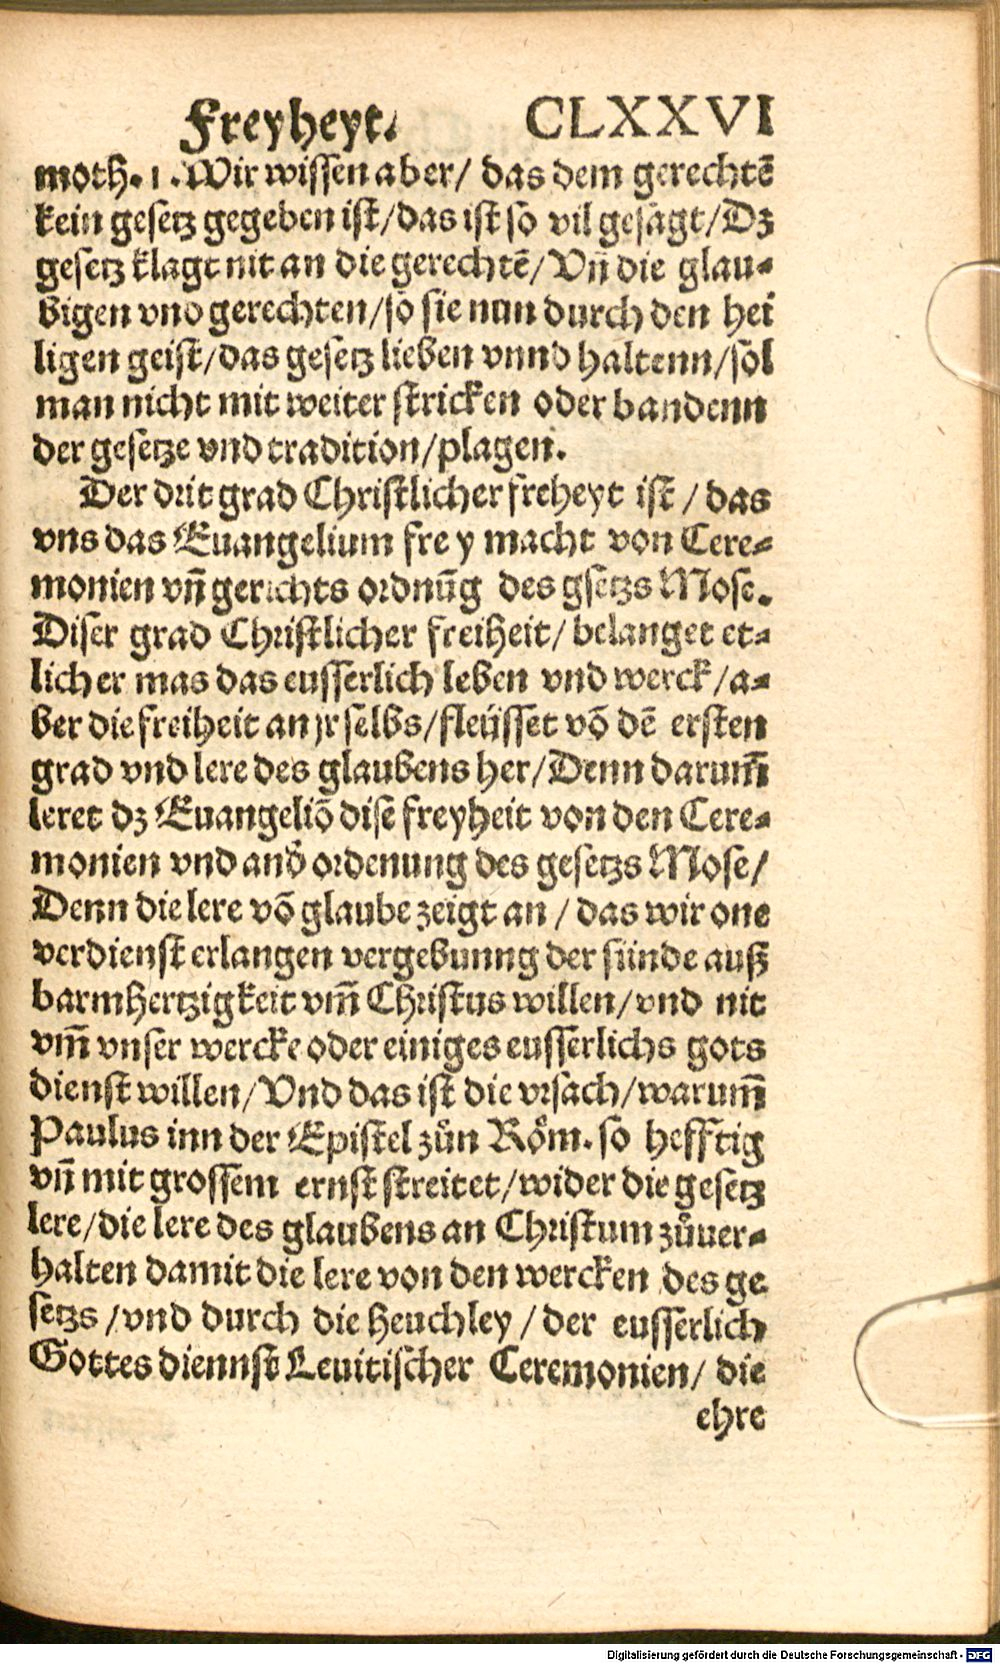 Freyheyt. CLXXVI
moth. 1. Wir wissen aber/ das dem gerechtē
kein gesetz gegeben ist/das ist so vil gesagt/Dz
gesetz klagt nit an die gerechtē/Vñ die glau-
bigen vnd gerechten/so sie nun durch den hei
ligen geist/das gesetz lieben vnnd haltenn/sol
man nicht mit weiter stricken oder bandenn
der gesetze vnd tradition/plagen.
Der drit grad Christlicher freheyt ist / das
vns das Euangelium frey macht von Cere-
monien vñ gerichts ordnūg des gsetzs Mose.
Diser grad Christlicher freiheit/ belanget et-
licher mas das eusserlich leben vnd werck/a-
ber die freiheit an jr selbs/fleüsset vō dē ersten
grad vnd lere des glaubens her/Denn darum̄
leret dz Euangeliō dise freyheit von den Cere-
monien vnd and̕ ordenung des gesetzs Mose/
Denn die lere vō glaube zeigt an / das wir one
verdienst erlangen vergebunng der sünde auß
barmhertzigkeit vm̄ Christus willen/vnd nit
vm̄ vnser wercke oder einiges eusserlichs gots
dienst willen/Vnd das ist die vrsach/warum̄
Paulus inn der Epistel zůn Röm. so hefftig
vñ mit grossem ernst streitet/wider die gesetz
lere/die lere des glaubens an Christum zůuer-
halten damit die lere von den wercken des ge
setzs /vnd durch die heuchley / der eusserlich
Gottes diennst Leuitischer Ceremonien/ die
ehre
Digitalisierung gefördert durch die Deutsche Forschungsgemeinschaft - DFG